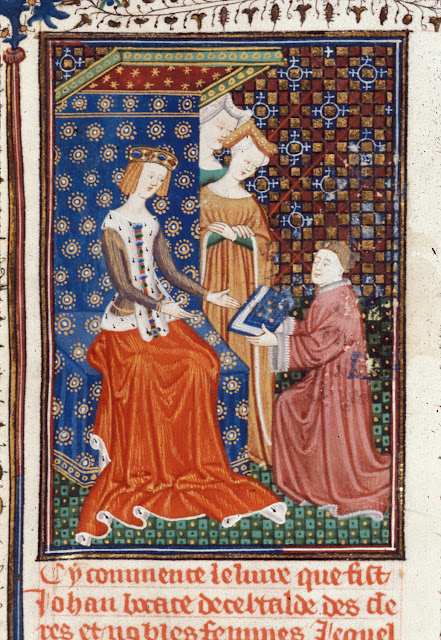 Cy commence le livre que fist
Johan bocace de certalde des cle
res et nobles femmes lequel